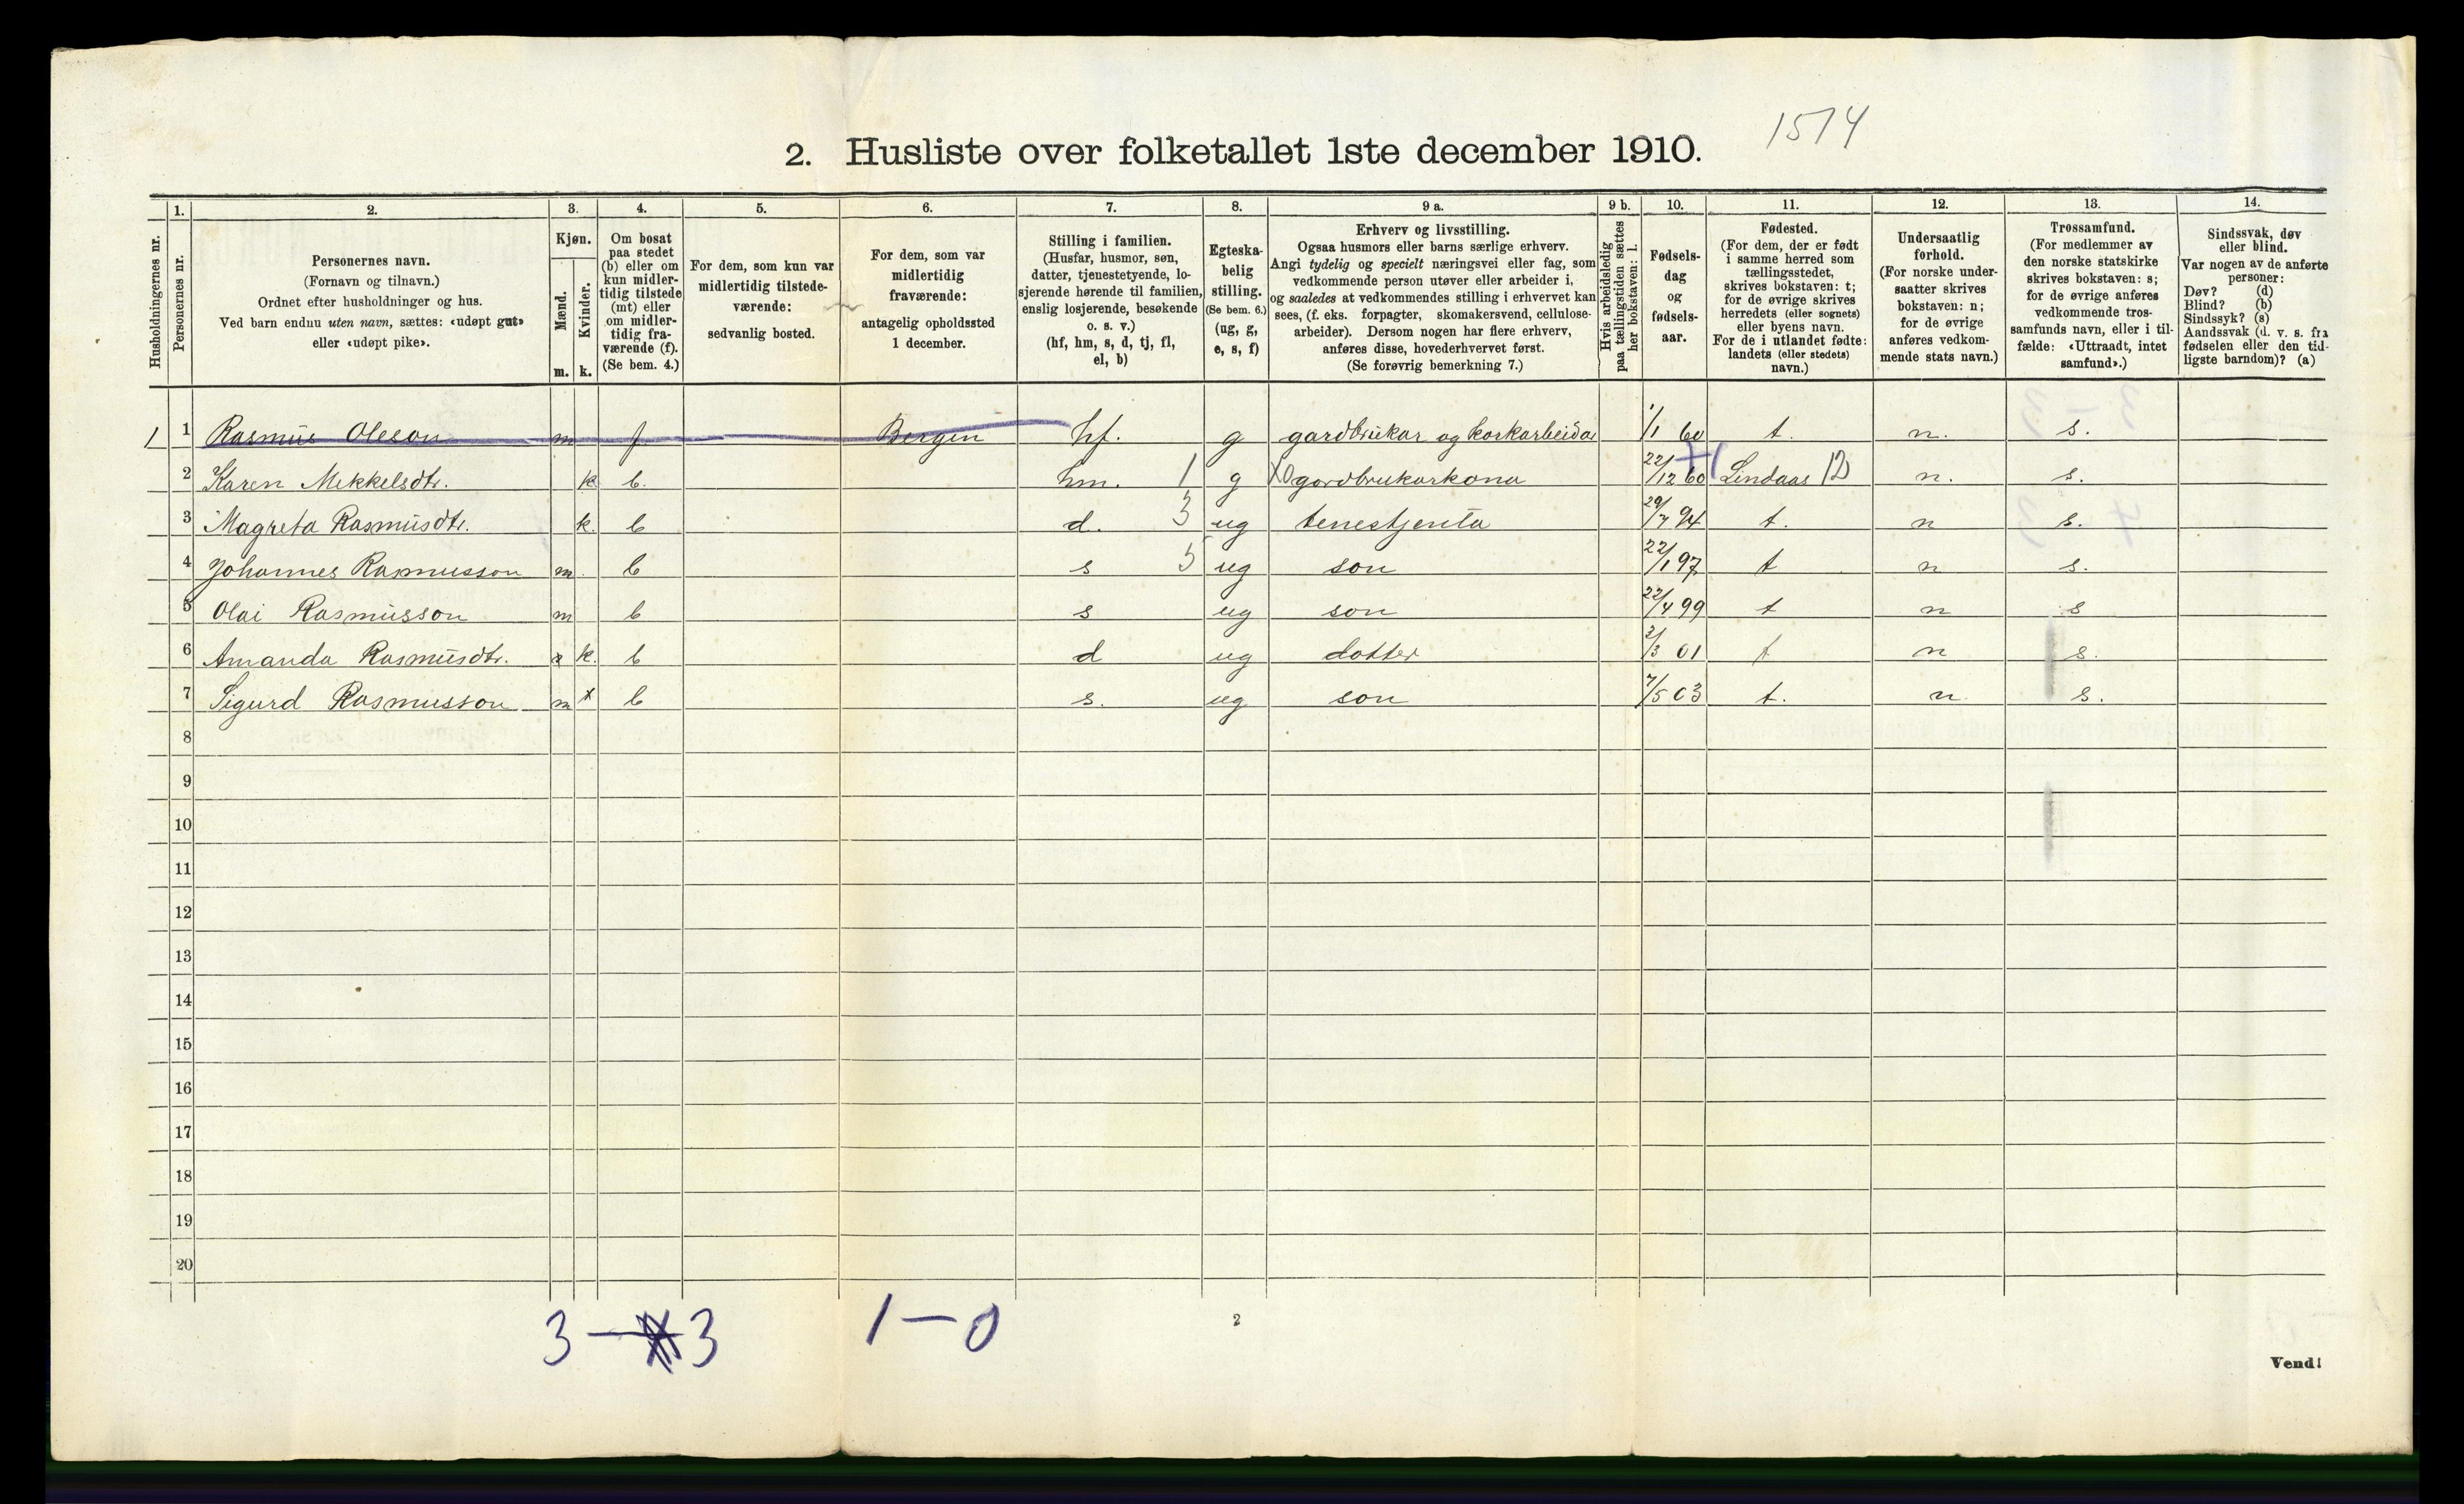 1514
2. Husliste over folketallet 1ste december 1910.
1. 2. 3. 4. 5. 6. 7. 8. 9 a. 9 b. 10. 11. 12. 13. 14.
Husholdningernes nr.
Personernes nr.
Personernes navn.
(Fornavn og tilnavn.)
Ordnet efter husholdninger og hus.
Ved barn endnu uten navn, sættes: «udøpt gut»
eller «udøpt pike».
Kjøn.
Mænd.
m.
Kvinder.
k.
Om bosat
paa stedet
(b) eller om
kun midler-
tidig tilstede
(mt) eller
om midler-
tidig fra-
værende (f).
(Se bem. 4.)
For dem, som kun var
midlertidig tilstede-
værende:
sedvanlig bosted.
For dem, som var
midlertidig
fraværende:
antagelig opholdssted
1 december.
Stilling i familien.
(Husfar, husmor, søn,
datter, tjenestetyende, lo-
sjerende hørende til familien,
enslig losjerende, besøkende
o. s. v.)
(hf, hm, s, d, tj, fl,
el, b)
Egteska-
belig
stilling.
(Se bem. 6.)
(ug, g,
e, s, f)
Erhverv og livsstilling.
Ogsaa husmors eller barns særlige erhverv.
Angi tydelig og specielt næringsvei eller fag, som
vedkommende person utøver eller arbeider i,
og saaledes at vedkommendes stilling i erhvervet kan
sees, (f. eks. forpagter, skomakersvend, cellulose-
arbeider). Dersom nogen har flere erhverv,
anføres disse, hovederhvervet først.
(Se forøvrig bemerkning 7.)
Hvis arbeidsledig
paa tællingstiden sættes
her bokstaven: l.
Fødsels-
dag
og
fødsels-
aar.
Fødested.
(For dem, der er født
i samme herred som
tællingsstedet,
skrives bokstaven: t;
for de øvrige skrives
herredets (eller sognets)
eller byens navn.
For de i utlandet fødte:
landets (eller stedets)
navn.)
Undersaatlig
forhold.
(For norske under-
saatter skrives
bokstaven: n;
for de øvrige
anføres vedkom-
mende stats navn.)
Trossamfund.
(For medlemmer av
den norske statskirke
skrives bokstaven: s;
for de øvrige anføres
vedkommende tros-
samfunds navn, eller i til-
fælde: «Uttraadt, intet
samfund».)
Sindssvak, døv
eller blind.
Var nogen av de anførte
personer:
Døv? (d)
Blind? (b)
Sindssyk? (s)
Aandssvak (d. v. s. fra
fødselen eller den tid-
ligste barndom)? (a)
1 1 Rasmus Oleson m f Bergen hf. g gardbrukar og korkarbeidar 1/1 60 t. n. s.
2 Karen Mekkelsdtr. k b. hm. 1 g gardbrukarkona 22/12 60 Lindaas 12 n. s.
3 Magreta Rasmusdtr. k. b d. 3 ug tenestjenta 29/7 94 t. n s.
4 Johannes Rasmusson m. b s 5 ug son 22/1 97 t n s.
5 Olai Rasmusson m b s ug son 22/4 99 t n s
6 Amanda Rasmusdtr. k. b d ug dotter 2/3 01 t n s.
7 Sigurd Rasmusson m b s. ug son 7/5 03 t. n s.
8
9
10
11
12
13
14
15
16
17
18
19
20
3 — 3 1 — 0
2
Vend!